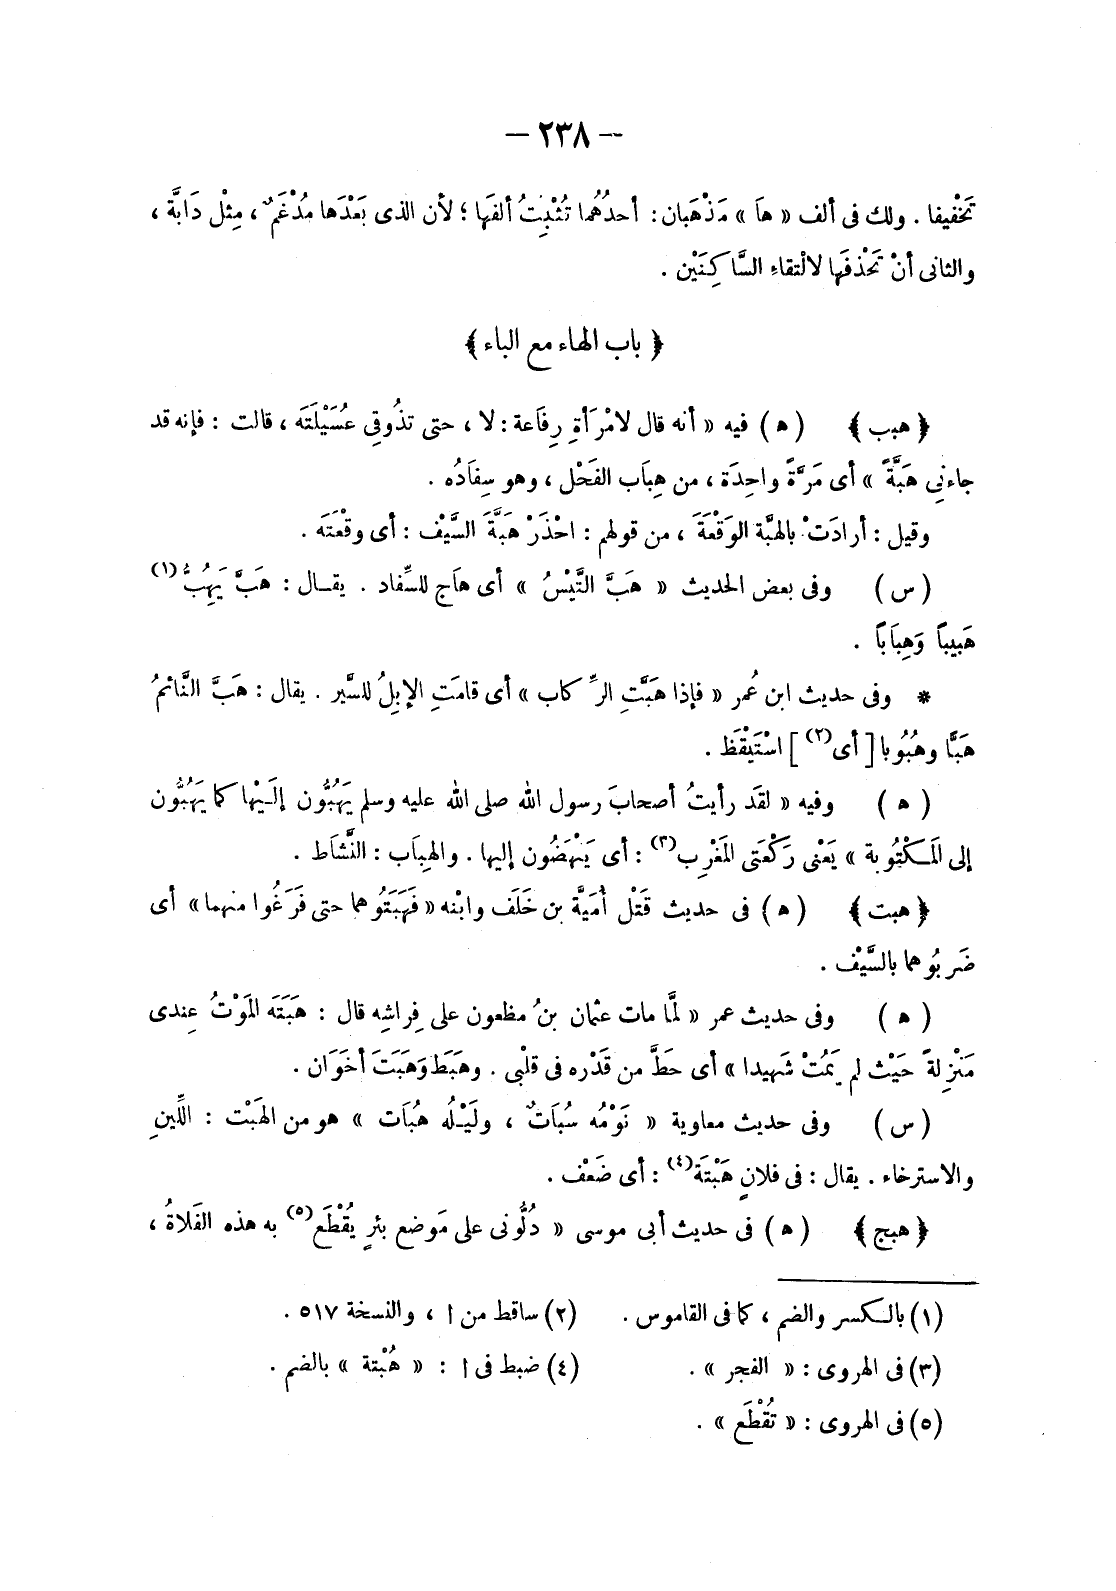 — ٢٣٨ —
تَخْفيفا . ولك فى ألف « هَا » مَذْهَبان : أحدُهُما تُثْبِتُ ألفَها ؛ لأن الذى بَعْدَها مُدْغَمٌ ، مِثْل دَابَّة ،
والثانى أنْ تَحْذفَها لالْتقاءِ السَّاكِنَيْن .
﴿ باب الهاء مع الباء ﴾
﴿ هبب ﴾ ( ه ) فيه « أنه قال لامْرَأةِ رِفَاعة : لا ، حتى تذُوقِى عُسَيْلَتَه ، قالت : فإنه قد
جاءنِى هَبَّةً » أى مَرَّةً واحِدَة ، من هِبَاب الفَحْل ، وهو سِفَادُه .
وقيل : أرادَتْ بالهَبَّة الوَقْعَةَ ، من قولهم : احْذَرْ هَبَّةَ السَّيْف : أى وقْعَتَه .
( س ) وفى بعض الحديث « هَبَّ التَّيْسُ » أى هَاج للسِّفاد . يقال : هَبَّ يَهِبُّ(١)
هَبِيباً وَهِبَاباً .
* وفى حديث ابن عُمر « فإذا هَبَّتِ الرِّكاب » أى قامَتِ الإبِلُ للسَّير . يقال : هَبَّ النَّائمُ
هَبًّا وهُبُوبا [ أى(٢) ] اسْتَيْقَظ .
( ه ) وفيه « لقَد رأيتُ أصحابَ رسول الله صلى الله عليه وسلم يَهُبُّون إلَيْها كما يَهُبُّون
إلى المَكْتُوبة » يَعْنى رَكْعَتى المَغْرِب(٣) : أى يَنْهَضُون إليها . والهِبَاب : النَّشَاط .
﴿ هبت ﴾ ( ه ) فى حديث قَتْل أُمَيَّة بن خَلَف وابْنه « فَهَبَتُوهما حتى فَرَغُوا منهما » أى
ضَربُوهما بالسَّيْف .
( ه ) وفى حديث عمر « لمَّا مات عثمان بنُ مظعون على فِراشِه قال : هَبَتَه المَوْتُ عِندى
مَنْزِلةً حَيْث لم يَمُتْ شَهيدا » أى حَطَّ من قَدْره فى قلْبى . وهَبَط وَهَبَتَ أخَوَان .
( س ) وفى حديث معاوية « نَوْمُه سُبَاتٌ ، ولَيْلُه هُبَات » هو من الهَبْت : اللِّينِ
والاسترخاء . يقال : فى فلانٍ هَبْتَة(٤) : أى ضَعْف .
﴿ هبج ﴾ ( ه ) فى حديث أبى موسى « دُلُّونى على مَوضع بئرٍ يُقْطَع(٥) به هذه الفَلاةُ ،
(١) بالكسر والضم ، كما فى القاموس .	(٢) ساقط من ا ، والنسخة ٥١٧ .
(٣) فى الهروى : « الفجر » .	(٤) ضبط فى ا : « هُبْتة » بالضم .
(٥) فى الهروى : « تُقْطَع » .